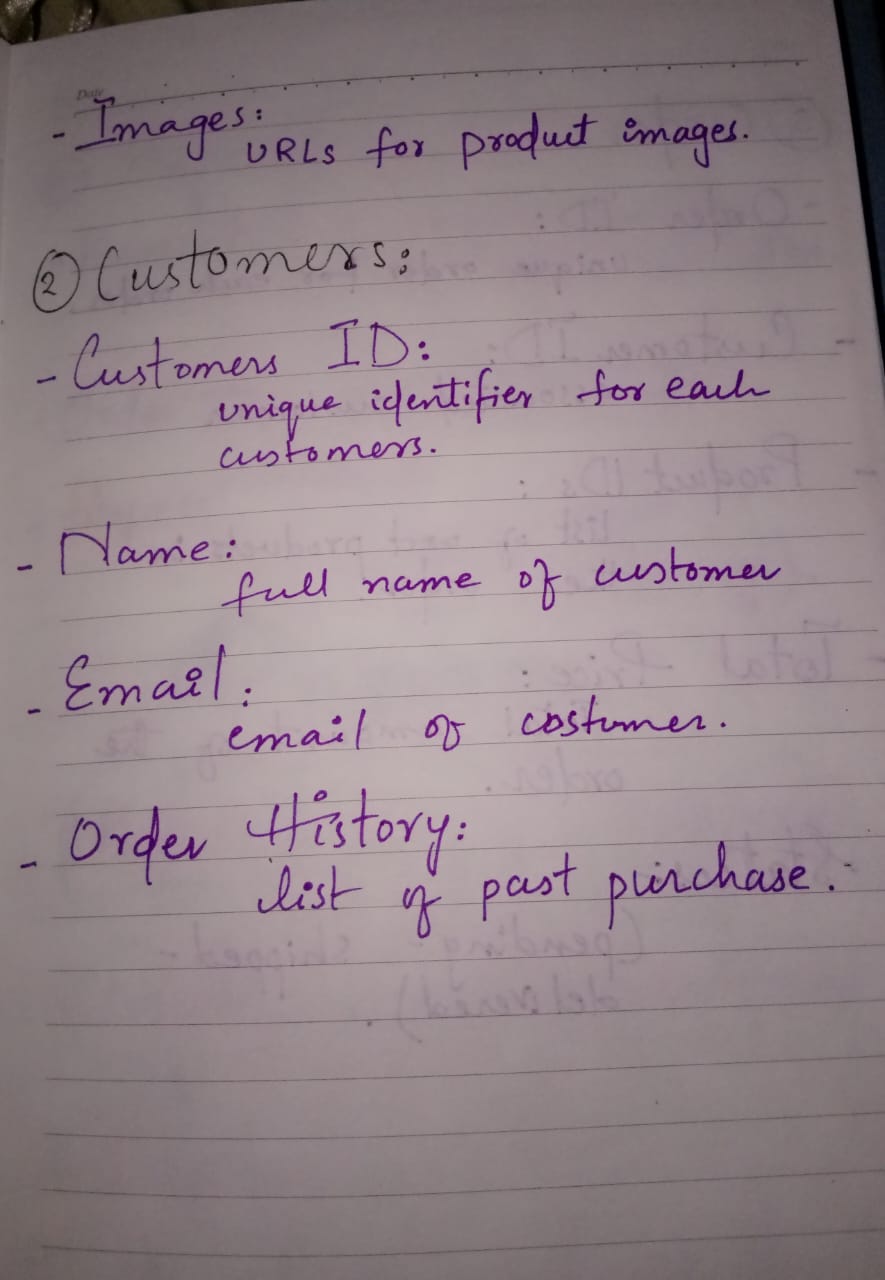 Date
- Images:
URLs for product images.
② Customers:
- Customers ID:
unique identifier for each
customers.
- Name:
full name of customer
- Email:
email of costumer.
- Order History:
list of past purchase.